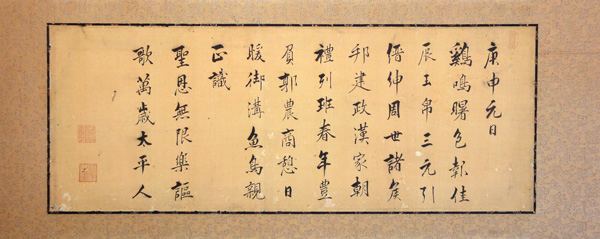 庚申元日
鷄鳴曙色報佳
辰玉帛三元引
縉紳周世諸矦
邦建政漢家朝
禮列班春年豊
負郭農商憩日
暖御溝魚鳥親
正識
聖恩無限樂謳
歌萬歳太平人